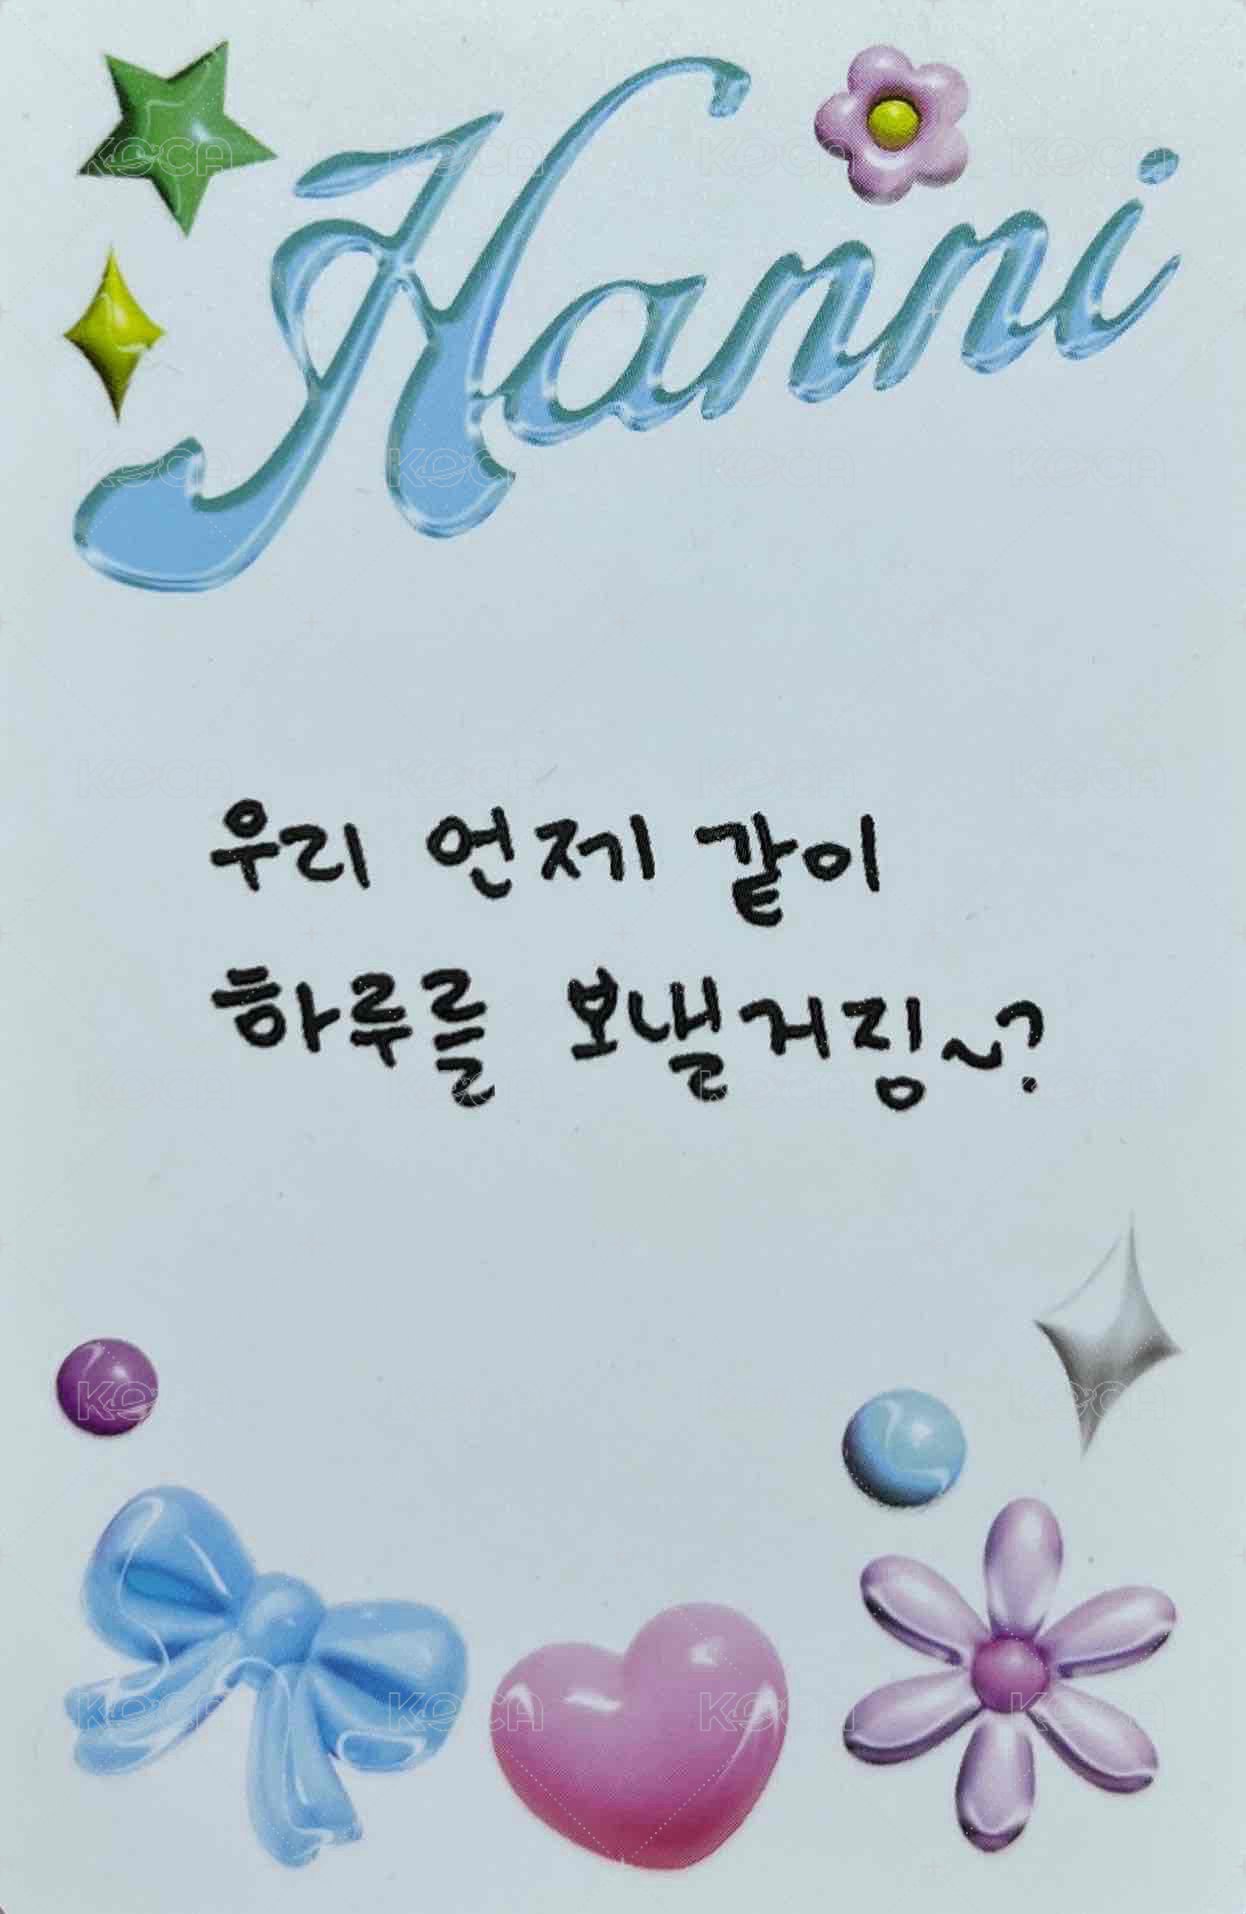 Hanni
우리 언제 같이
하루를 보낼거징~?
KOCA